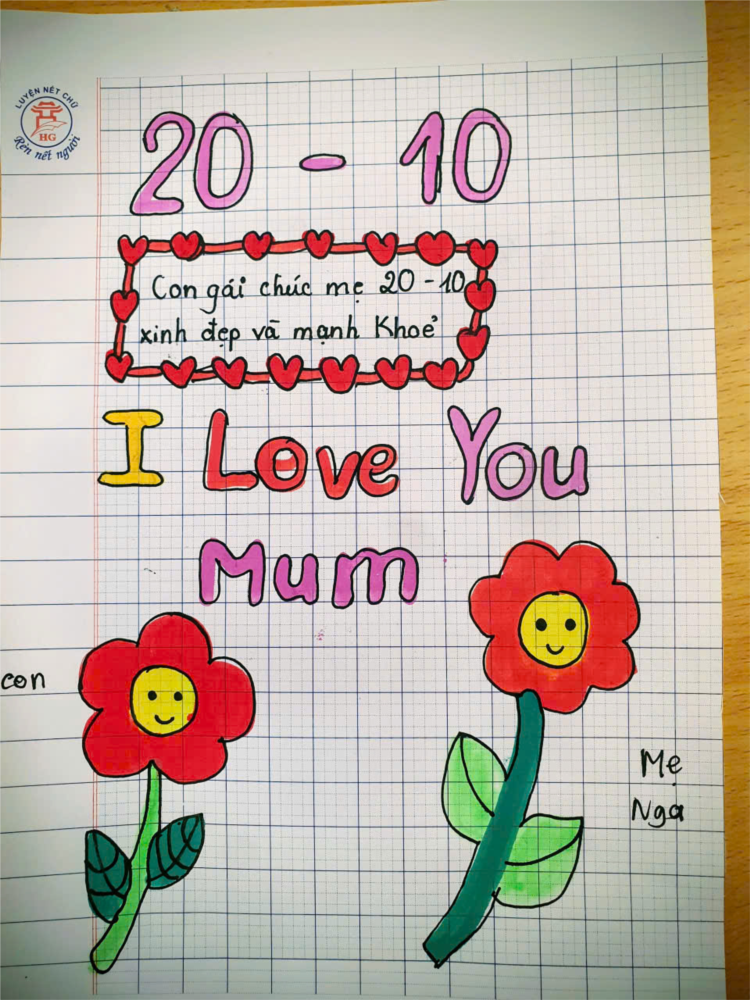 LUYỆN NÉT CHỮ
HG
Rèn nết người
20 - 10
Con gái chúc mẹ 20 - 10
xinh đẹp và mạnh Khoẻ
I Love You
Mum
con
Mẹ
Nga